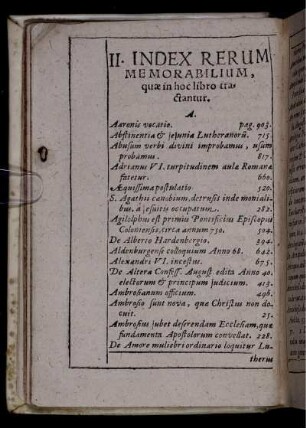 II. INDEX RERUM
MEMORABILIUM,
quæ in hoc libro tra-
ctantur.
A.
Aaronis vocatio. pag. 903.
Abstinentia & jejunia Lutheranorũ. 715.
Abusum verbi divini improbamus, usum
probamus. 817.
Adrianus VI. turpitudinem aulæ Romanæ
fatetur. 660.
Æquissima postulatio 520.
S. Agathæ cœnobium, detrusis inde monialibus, à Jesuitis occupatum. 283.
Agilolphus est primus Pontificius Episcopus
Coloniensis, circa annum 750. 504.
De Alberto Hardenbergio. 394.
Aldenburgense colloquium Anno 68. 642.
Alexandri VI. incestus. 675.
De Altera Confess. August. edita Anno 40.
electorum & principum judicium. 413.
Ambrosianum officium. 496.
Ambrosio sunt nova, quæ Christus non do-
cuit. 25.
Ambrosius jubet deserendam Ecclesiam, quæ
fundamenta Apostolorum convellat. 228.
De Amore muliebri ordinario loquitur Lu-
therus